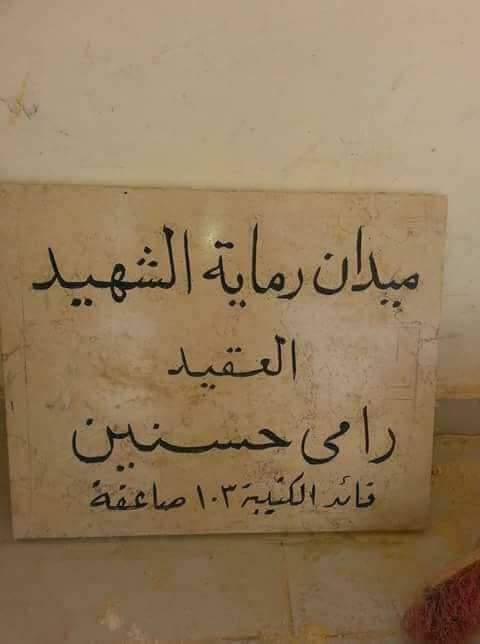 ميدان رماية الشهيد
العقيد
رامى حسنين
قائد الكتيبة ١٠٣ صاعقة